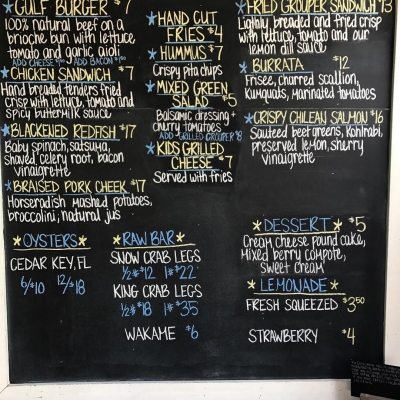 GULF BURGER $7
100% natural beef on a
brioche bun with lettuce,
tomato and garlic aioli
ADD CHEESE $.50 ADD BACON $1.50
CHICKEN SANDWICH $7
Hand breaded tenders fried
crisp with lettuce, tomato and
spicy buttermilk sauce
BLACKENED REDFISH $17
Baby spinach, satsuma,
shaved celery root, bacon
vinaigrette
BRAISED PORK CHEEK $17
Horseradish mashed potatoes,
broccolini, natural jus
HAND CUT
FRIES $4
HUMMUS $7
Crispy pita chips
MIXED GREEN
SALAD $5
Balsamic dressing +
cherry tomatoes
ADD GRILLED GROUPER $8
KIDS GRILLED
CHEESE $7
Served with fries
FRIED GROUPER SANDWICH $13
Lightly breaded and fried crisp
with lettuce, tomato and our
lemon dill sauce
BURRATA $12
Frisee, charred scallion,
kumquats, marinated tomatoes
CRISPY CHILEAN SALMON $16
Sauteed beet greens, kohlrabi,
preserved lemon, sherry
vinaigrette
OYSTERS
CEDAR KEY, FL
6/$10 12/$18
RAW BAR
SNOW CRAB LEGS
½# $12 1# $22
KING CRAB LEGS
½# $18 1# $35
WAKAME $6
DESSERT $5
Cream cheese pound cake,
Mixed berry compote,
sweet cream
LEMONADE
FRESH SQUEEZED $3.50
STRAWBERRY $4